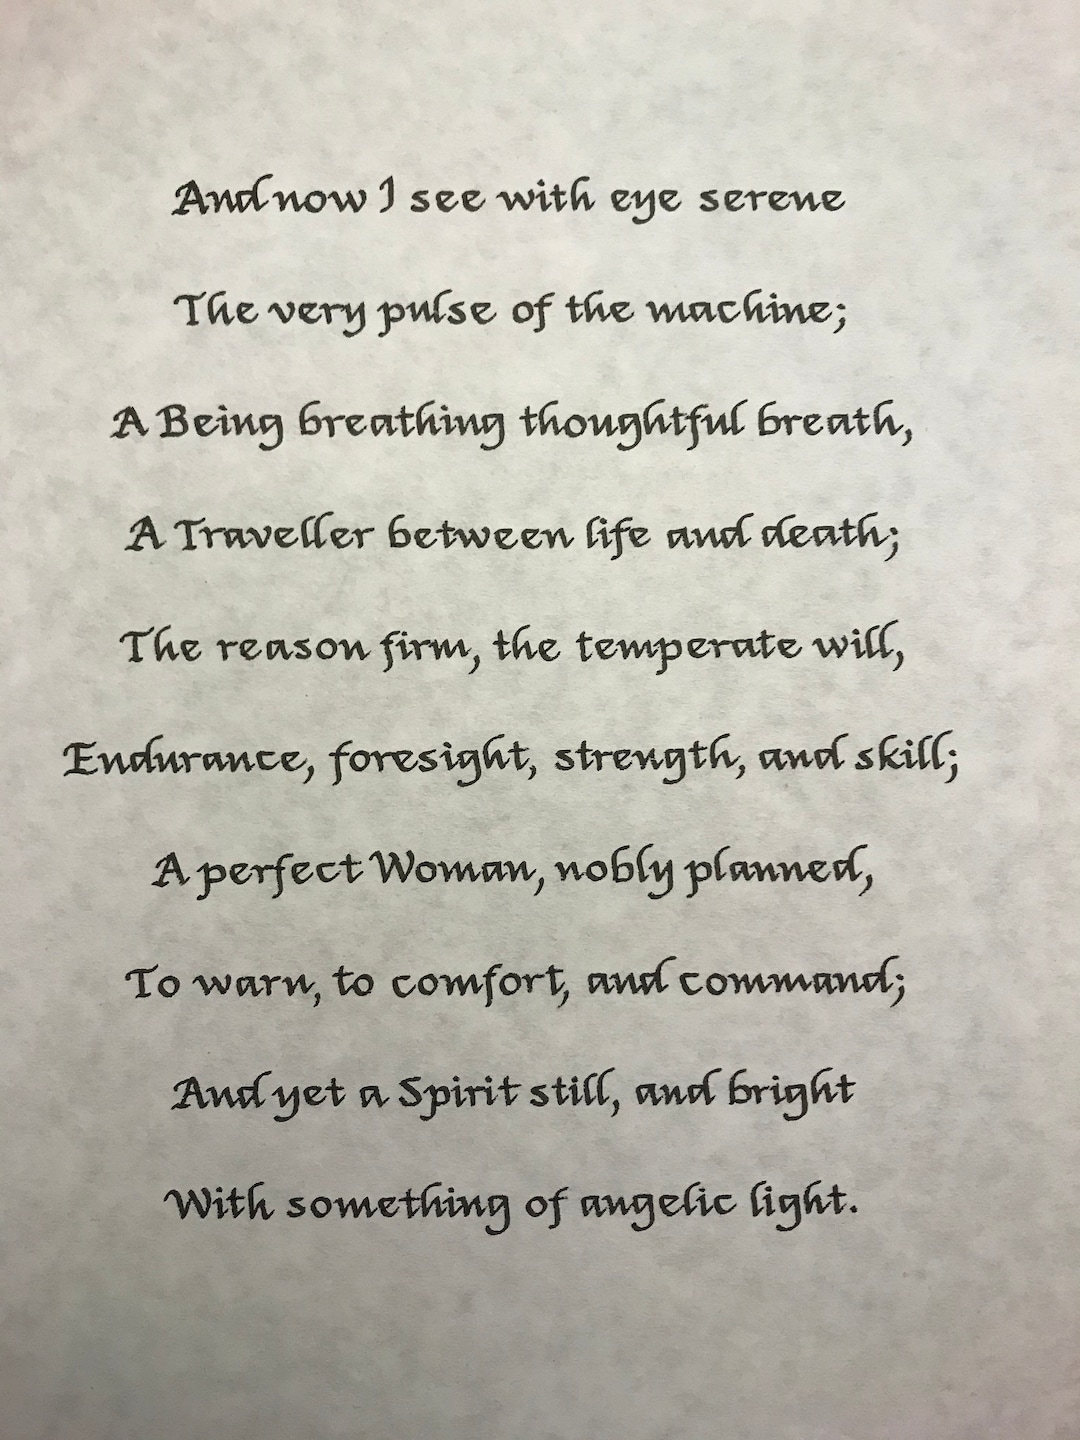 And now I see with eye serene
The very pulse of the machine;
A Being breathing thoughtful breath,
A Traveller between life and death;
The reason firm, the temperate will,
Endurance, foresight, strength, and skill;
A perfect Woman, nobly planned,
To warn, to comfort, and command;
And yet a Spirit still, and bright
With something of angelic light.